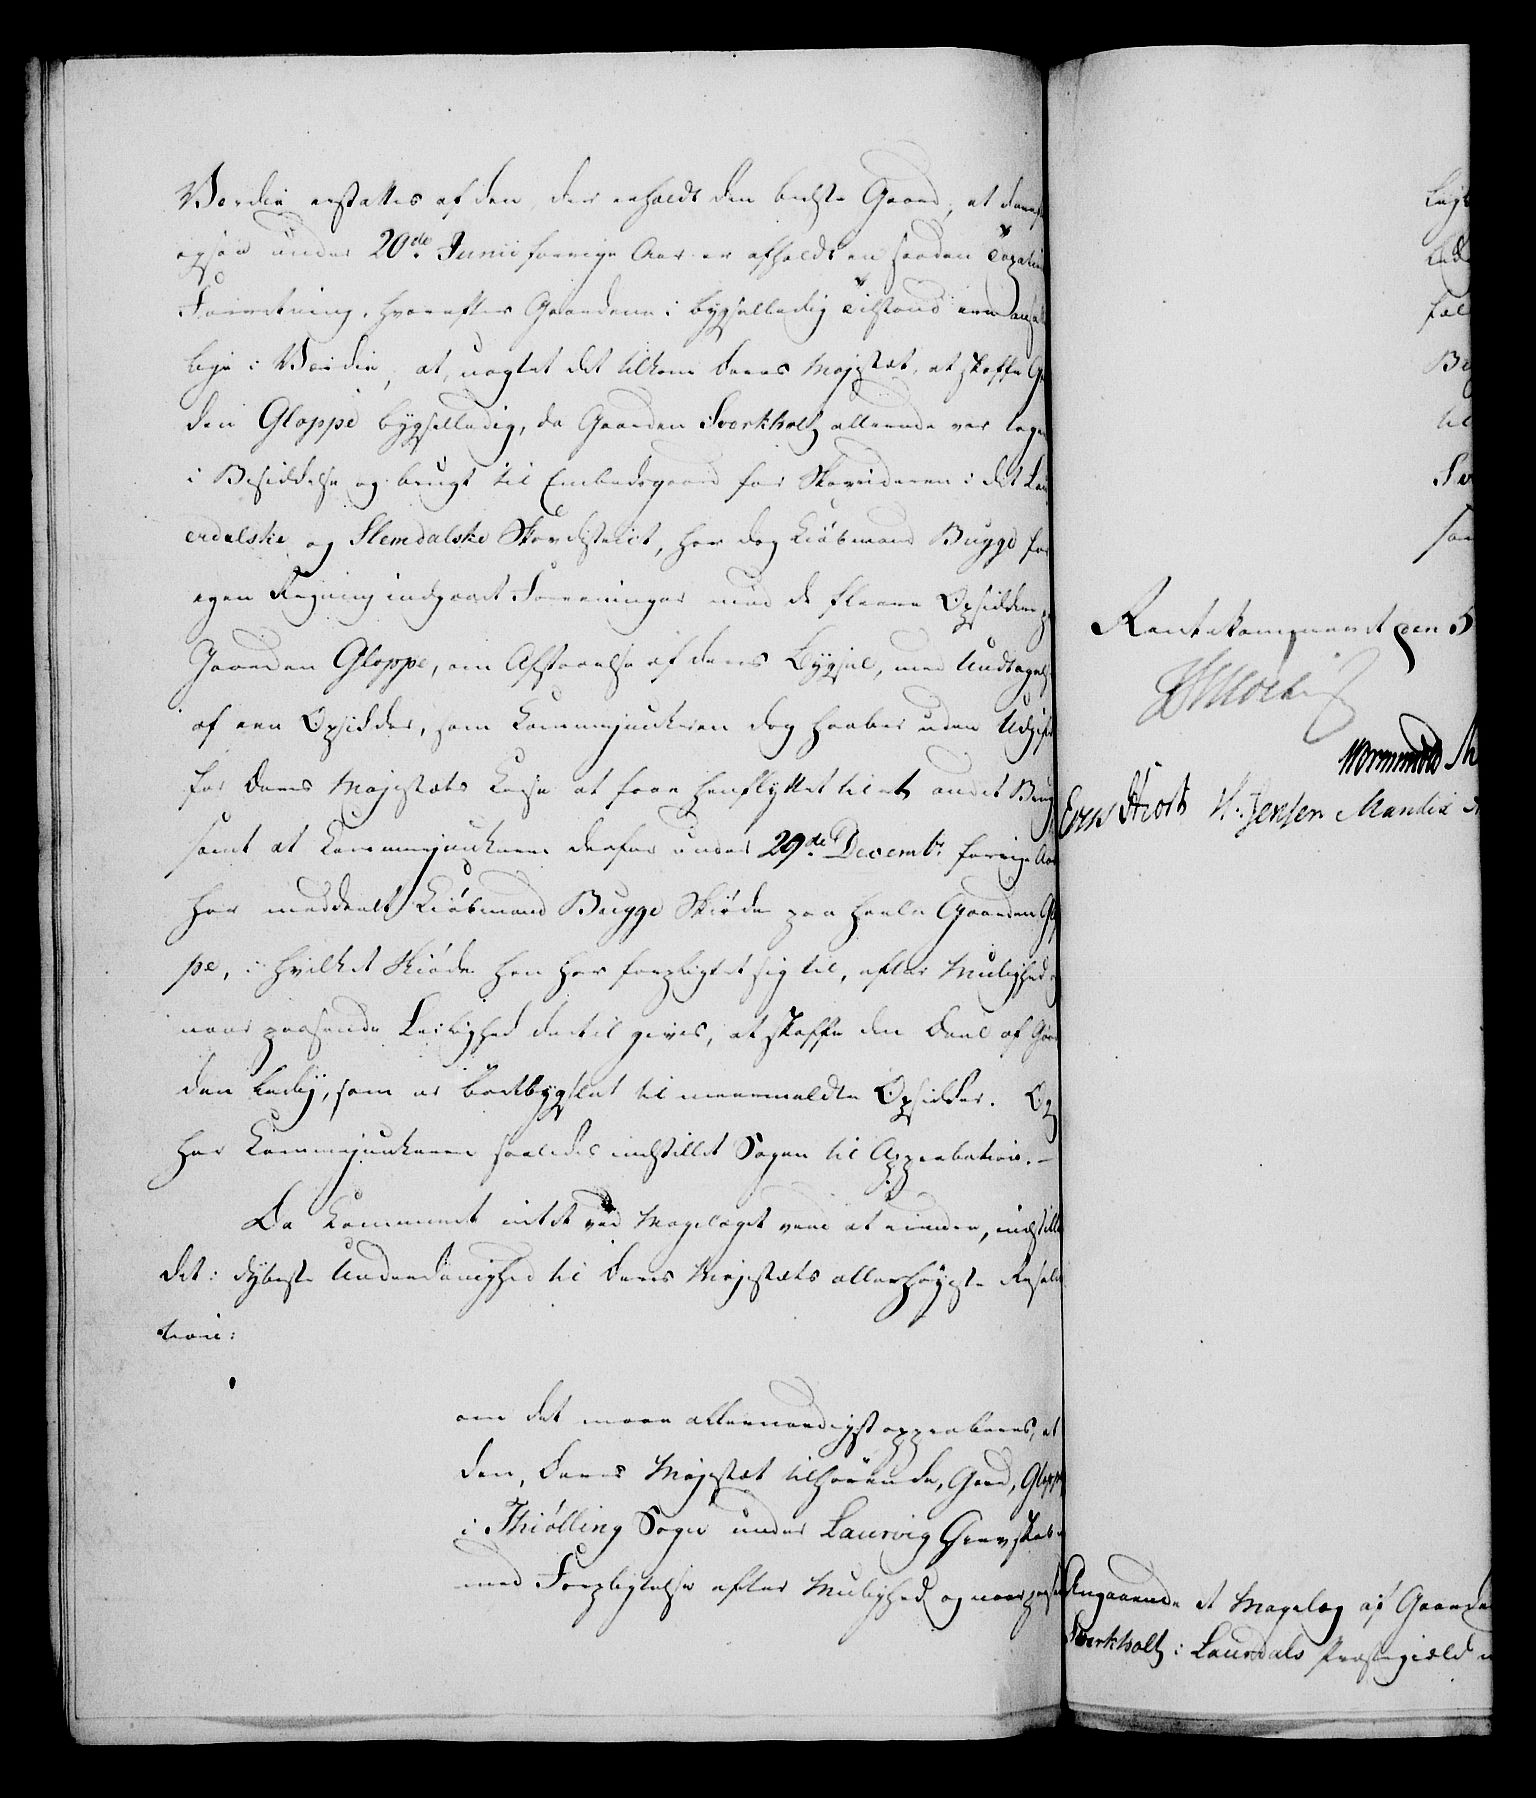 Værdie erstattes af den, der erholdt den bedste Gaard, at denne
ogsaa under 20de Junii forrige Aar er afholdt en saadan Taxations
Forretning, hvorefter Gaardene i bygselledig Tilstand ere ansat
lige i Værdie, at, uagtet det tilkom Deres Majestæt, at skaffe
den Gloppe bygselledig, da Gaarden Sverkholt allerede var tagen
i Besiddelse og brugt til Embedsgaard for Skovrideren i det
erdalske og Slemdalske Skovdistrict, har dog Kiøbmand Bugge for
egen Regning indgaaet Foreninger med de fleere Opsiddere paa
Gaarden Gloppe, om Afstaaelse af deres Bygsel, med Undtagelse
af een Opsidder, som Kammerjunkeren dog haaber uden Udgift
for Deres Majestæts Casse at faae henflyttet til et andet Brug
samt at Kammerjunkeren derfor under 29de Decembr forrige Aar
har meddeelt Kiøbmand Bugge Skiøde paa heele Gaarden Glop
pe, i hvilket Skiøde han har forpligtet sig til, efter Muelighed og
naar passende Leilighed dertil gives, at skaffe den Deel af Gaar
den ledig, som er bortbygslet til meermeldte Opsidder. Og
har Kammerjunkeren saaledes indstillet Sagen til Approbation. –
Da Kammeret intet ved Magelæget veed at erindre, indstilles
det i dybeste Underdanighed til Deres Majestæts allerhøyeste Resolu
tion:
om det maae allernaadigst approberes, at
den, Deres Majestæt tilhørende, Gaard, Gloppe
i Thiølling Sogn under Laurvig Grevskab
med Forpligtelse efter Muelighed og naar passe
Rentekammeret den 5
Wormskiold
Hiort H. Jensen Mandix
Angaaende et Magelæg af Gaarden
Sverkholt i Laurdals Præstegield